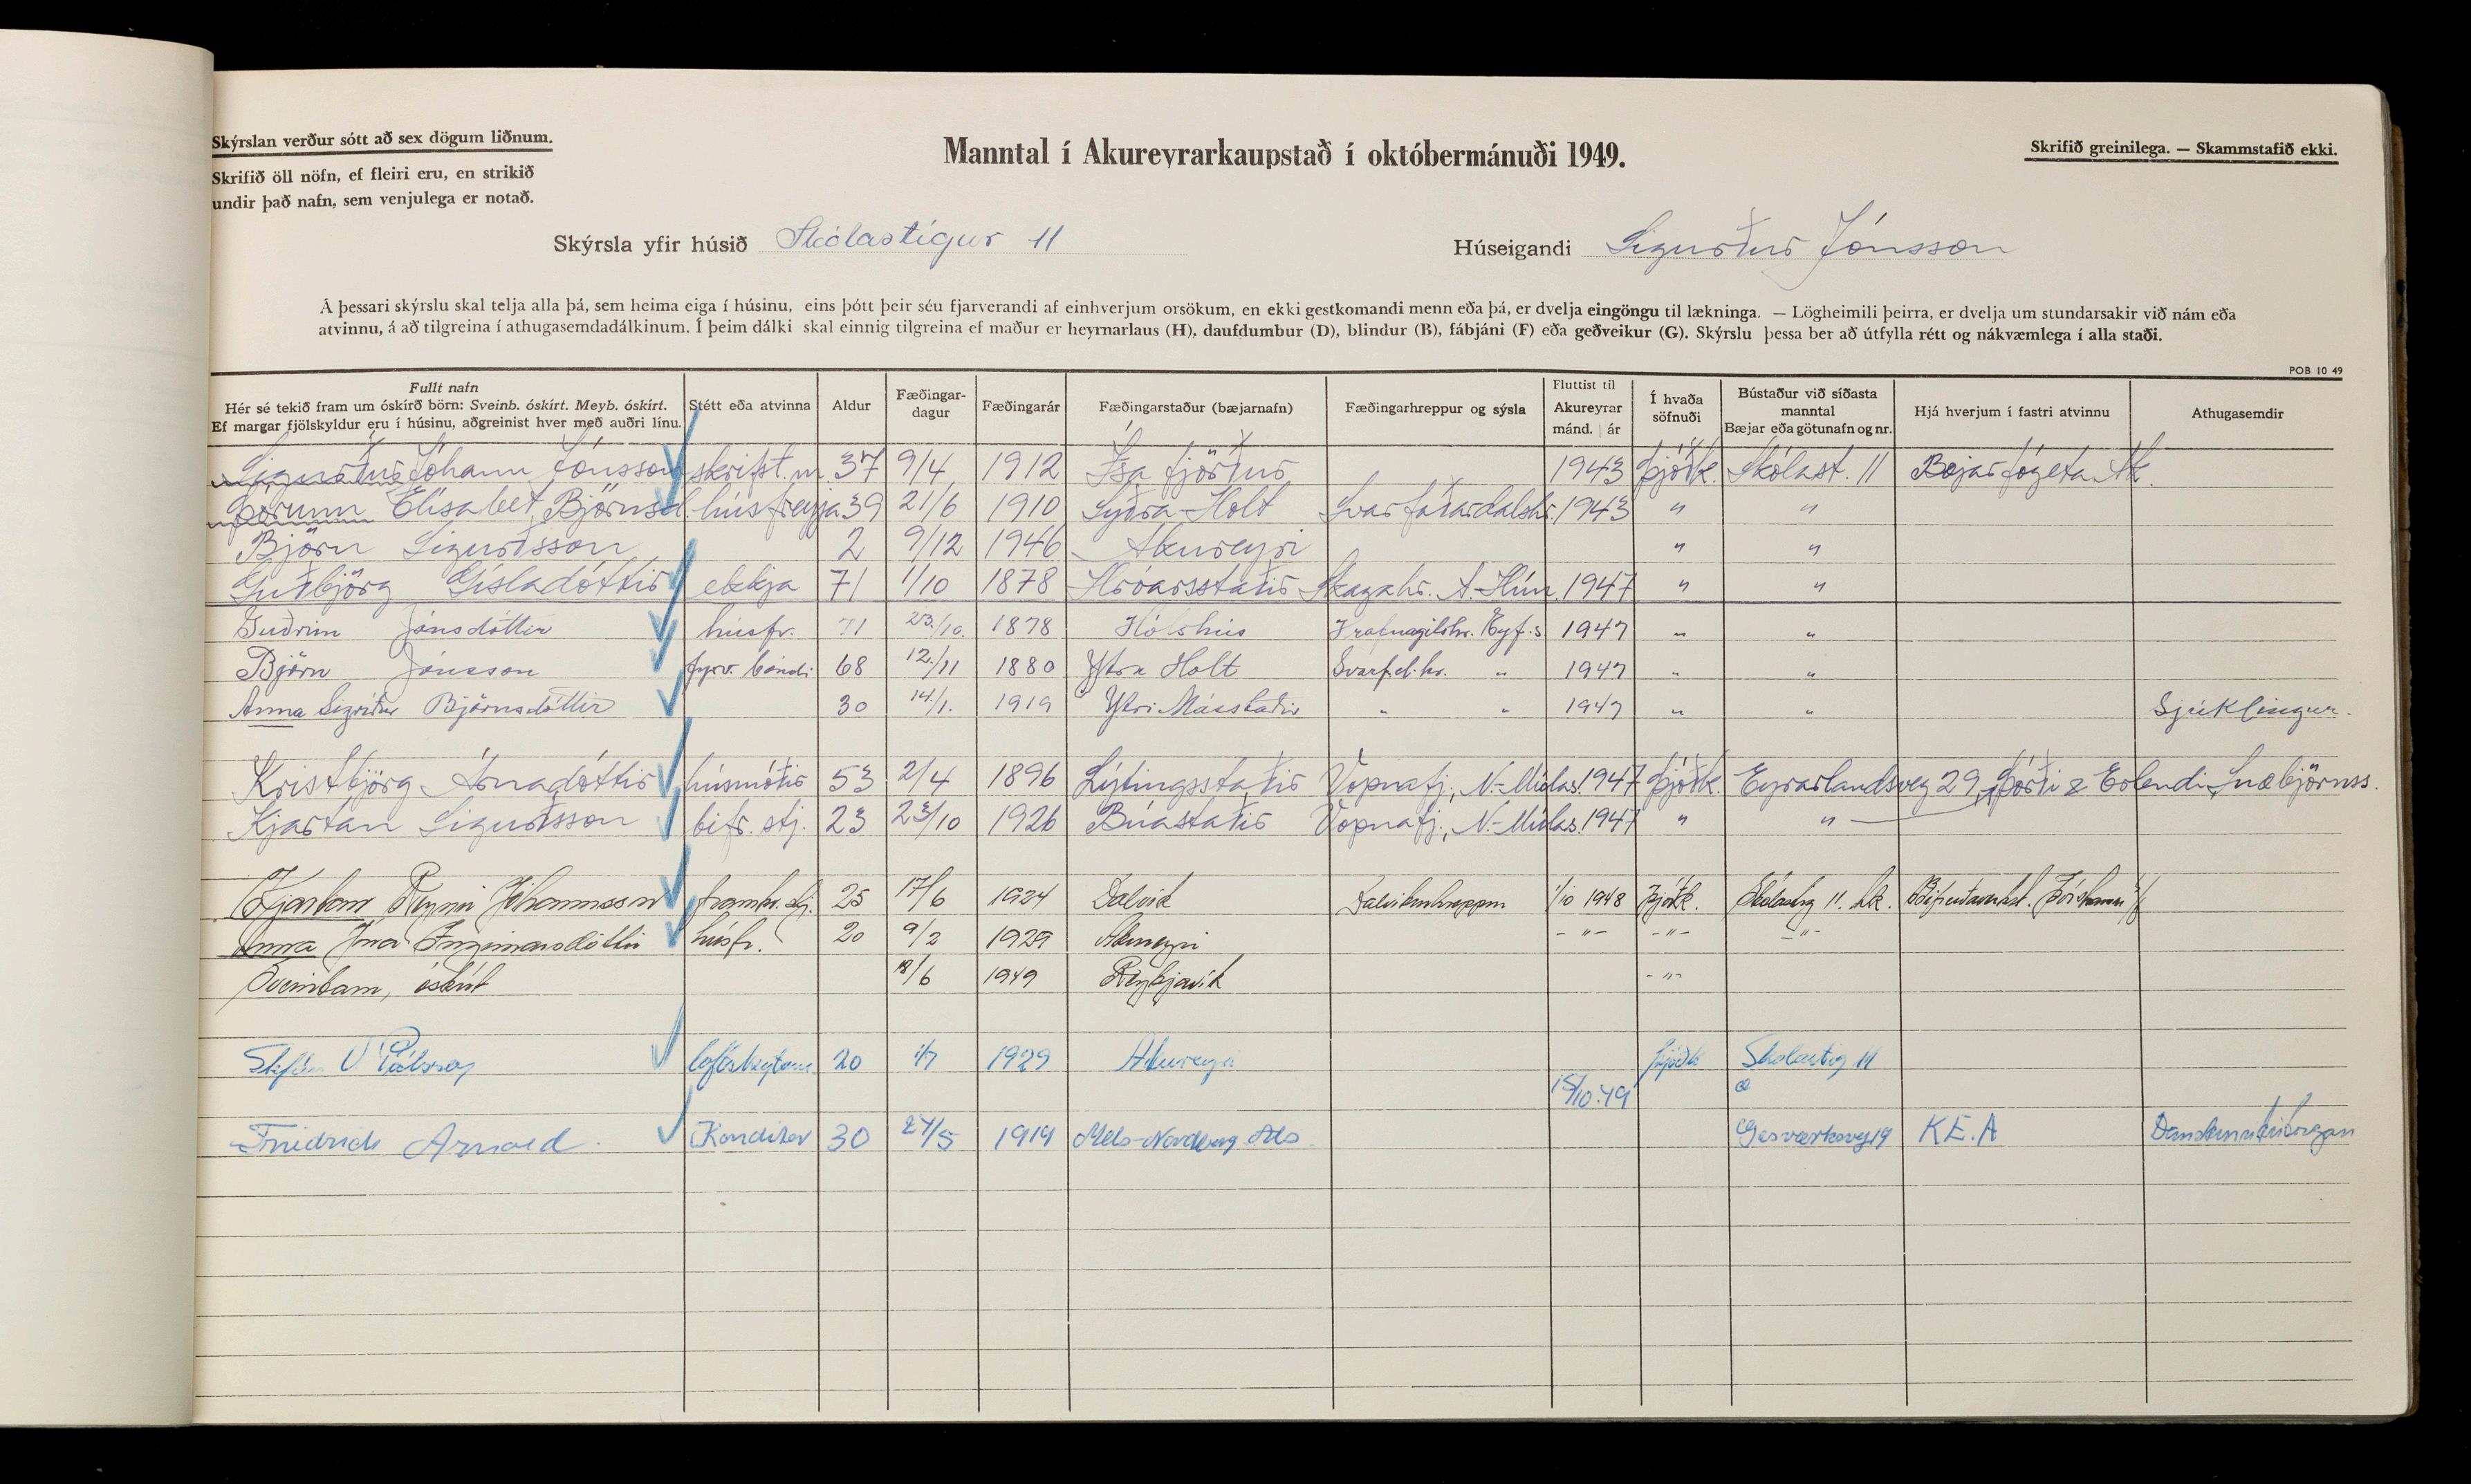 Skýrslan verður sótt að sex dögum liðnum.
Skrifið öll nöfn, ef fleiri eru, en strikið
undir það nafn, sem venjulega er notað.
Manntal í Akureyrarkaupstað í októbermánuði 1949.
Skrifið greinilega. — Skammstafið ekki.
Skýrsla yfir húsið Skólastígur 11
Húseigandi Sigurður Jónsson
Á þessari skýrslu skal telja alla þá, sem heima eiga í húsinu, eins þótt þeir séu fjarverandi af einhverjum orsökum, en ekki gestkomandi menn eða þá, er dvelja eingöngu til lækninga. — Lögheimili þeirra, er dvelja um stundarsakir við nám eða
atvinnu, á að tilgreina í athugasemdadálkinum. Í þeim dálki skal einnig tilgreina ef maður er heyrnarlaus (H), daufdumbur (D), blindur (B), fábjáni (F) eða geðveikur (G). Skýrslu þessa ber að útfylla rétt og nákvæmlega í alla staði.
POB 10 49
Fullt nafn
Hér sé tekið fram um óskírð börn: Sveinb. óskírt. Meyb. óskírt.
Ef margar fjölskyldur eru í húsinu, aðgreinist hver með auðri línu.
Stétt eða atvinna
Aldur
Fæðingar-
dagur
Fæðingarár
Fæðingarstaður (bæjarnafn)
Fæðingarhreppur og sýsla
Fluttist til
Akureyrar
mánd. ár
Í hvaða
söfnuði
Bústaður við síðasta
manntal
Bæjar eða götunafn og nr.
Hjá hverjum í fastri atvinnu
Athugasemdir
Sigurður Jóhann Jónsson skrifst.m. 37 9/4 1912 Ísafjörður 1943 Þjóðk. Skólast. 11 Bæjarfógeta Ak.
Þórunn Elísabet Björnsd. húsfreyja 39 21/6 1910 Syðra-Holt Svarfaðardalshr. 1943 " "
Björn Sigurðsson 2 9/12 1946 Akureyri " "
Guðbjörg Gísladóttir ekkja 71 1/10 1878 Hróarsstaðir Skagahr. A.-Hún. 1947 " "
Guðrún Jónsdóttir húsfr. 71 23./10. 1878 Hólshús Hrafnagilshr. Eyf.s 1947 " "
Björn Jónsson fyrv. bóndi 68 12./11 1880 Ytra Holt Svarfd.hr. " 1947 " "
Anna Sigríður Björnsdóttir 30 14./1. 1919 Ytri Másstaðir " " 1947 " " Sjúklingur.
Kristbjörg Árnadóttir húsmóðir 53 2/4 1896 Lýtingsstaðir Vopnafj., N.-Múlas. 1947 Þjóðk. Eyrarlandsveg 29
Kjartan Sigurðsson bifr. stj. 23 23/10 1926 Búastaðir Vopnafj., N.-Múlas. 1947 " " Þórði & Erlendi Snæbjörnss.
Kjartan Reynir Jóhannsson framkv.stj. 25 17/6 1924 Dalvík Dalvíkurhreppur 1/10 1948 Þjóðk. Skólastíg 11. Ak.
Anna Ingimarsdóttir húsfr. 20 9/2 1929 Akureyri - " - - " - - " -
Sveinbarn, óskírt 18/6 1949 Reykjavík - " -
Stefán V Pálsson loftskeytam. 20 1/7 1929 Akureyri Þjóðk Skólastíg 11
15/10.49
Friedrich Arnold Konditor 30 27/5 1919 1 KEA